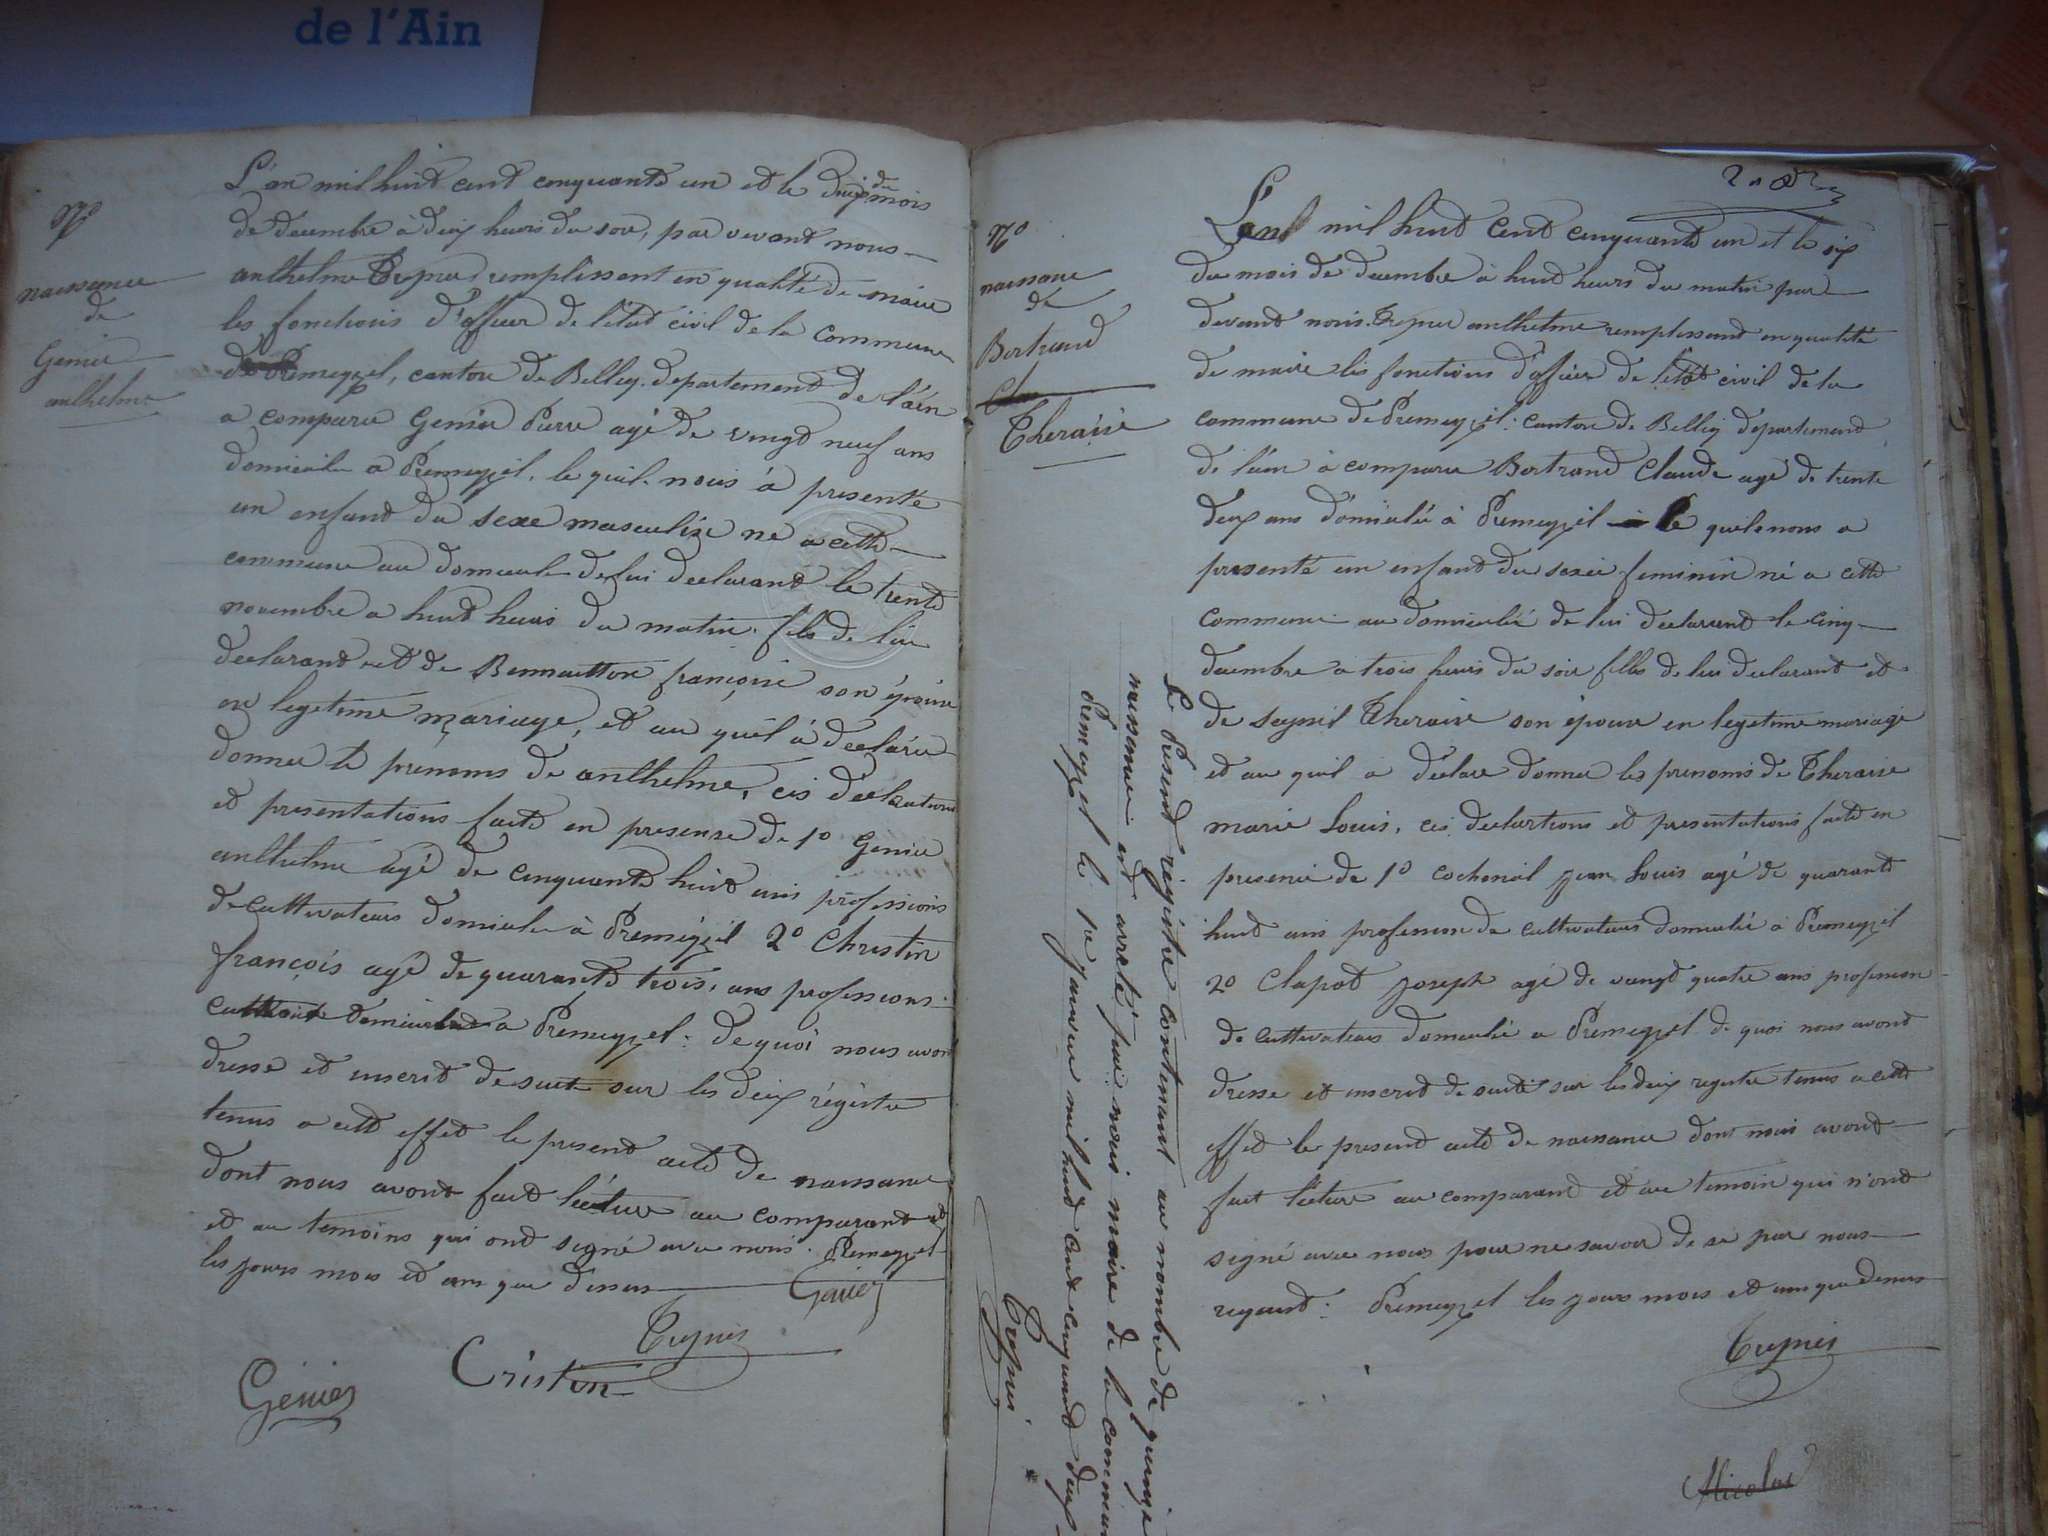 de l'Ain
No
naissance
de
Genier
anthelme
L'an mil huit cent cinquante un et le deux du mois
de decembre à deux heures du soir, par devant nous
anthelme Trepier remplissent en qualité de maire
les fonctions d'officier de l'état civil de la commune
de Premeyzel, canton de Belley, departement de l'ain
a comparu Genier Pierre agé de vingt neuf ans
domicile a Premeyzel, le quil nous à presenté
un enfant du sexe masculin né a cette
commune au domicile de lui declarant le trente
novembre a huit heures du matin. fils de lui
declarant et de françoise son épouse
en legetime mariage, et au quel à déclaré
donner le prenoms de anthelme, ces déclarations
et presentations faite en presense de 1o Genier
anthelme agé de cinquante huit ans professions
de cultivateurs domicile à Premeyzel 2o Christin
françois agé de quarante trois ans professions
cultivateur domicilié a Premeyzel : de quoi nous avont
dressé et inscrit de suite sur les deux régistre
tenus a cett effet le present acte de naissance
dont nous avont fait lécture au comparant et
et au temoins qui ont signé avec nous. Premeyzel
les jours mois et ans que dessus
Genier
Trepier
Cristin
Génier
No
naissance
de
Bertrand
Theraise
Lant mil huit cent cinquante un et le six
du mois de decembre à huit heures du matin par
devant nous Trepier anthelme remplissant en qualité
de maire les fonctions d'officier de l'état civil de la
commune de Premeyzel : canton de Belley departement
de l'ain à comparu Bertrand Claude agé de trente
deux ans domicilié à Premeyzel le quil nous a
presenté un enfant du sexe feminin né a cette
commune au domicilié de lui declarant le cinq
decembre a trois heures du soir fille de lui declarant et
de Theraise son épouse en legetime mariage
et au quil a déclare donner les prenoms de Theraise
marie Louis, ces declartions et presentations faite en
presence de 1o cochonat jean Louis agé de quarante
huit ans profession de cultivateurs domicilié a Premeyzel
2o Clapot joseph agé de vingt quatre ans profession
de cultivateurs domicilié a Premeyzel de quoi nous avont
dresse et inscrit de suite sur les deux registre tenus a cett
effet le present acte de naissance dont nous avont
fait lécture au comparant et au temoin qui n'ont
signé avec nous pour ne savoir de se par nous
requist : Premeyzel les jours mois et ans que dessus
Trepier
Nicolas
Le Présent régistre contenant au nombre de quinze
naissances est arreté par nous maire de la commune
Premeyzel le 1er janvier mil huit cent cinquante deux
Trepier